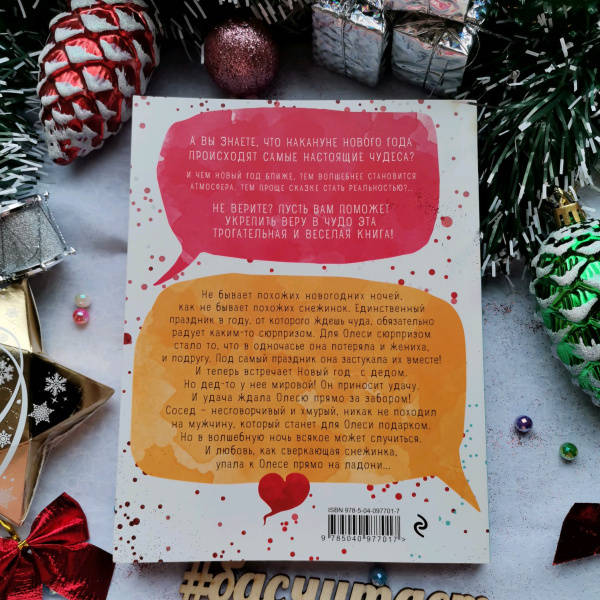 А ВЫ ЗНАЕТЕ, ЧТО НАКАНУНЕ НОВОГО ГОДА
ПРОИСХОДЯТ САМЫЕ НАСТОЯЩИЕ ЧУДЕСА?
И ЧЕМ НОВЫЙ ГОД БЛИЖЕ, ТЕМ ВОЛШЕБНЕЕ СТАНОВИТСЯ
АТМОСФЕРА, ТЕМ ПРОЩЕ СКАЗКЕ СТАТЬ РЕАЛЬНОСТЬЮ?..
НЕ ВЕРИТЕ? ПУСТЬ ВАМ ПОМОЖЕТ
УКРЕПИТЬ ВЕРУ В ЧУДО ЭТА
ТРОГАТЕЛЬНАЯ И ВЕСЕЛАЯ КНИГА!
Не бывает похожих новогодних ночей,
как не бывает похожих снежинок. Единственный
праздник в году, от которого ждешь чуда, обязательно
радует каким-то сюрпризом. Для Олеси сюрпризом
стало то, что в одночасье она потеряла и жениха,
и подругу. Под самый праздник она застукала их вместе!
И теперь встречает Новый год с дедом.
Но дед-то у нее мировой! Он приносит удачу.
И удача ждала Олесю прямо за забором!
Сосед – несговорчивый и хмурый, никак не походил
на мужчину, который станет для Олеси подарком.
Но в волшебную ночь всякое может случиться.
И любовь, как сверкающая снежинка,
упала к Олесе прямо на ладони...
ISBN 978-5-04-097701-7
9 785040 977017 >
#басчитает